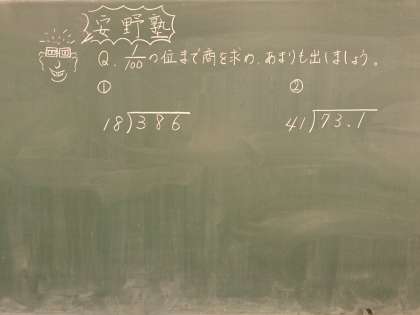 安野塾
Q. 1/100の位まで商を求め、あまりも出しましょう。
① ②
18)386 41)73.1